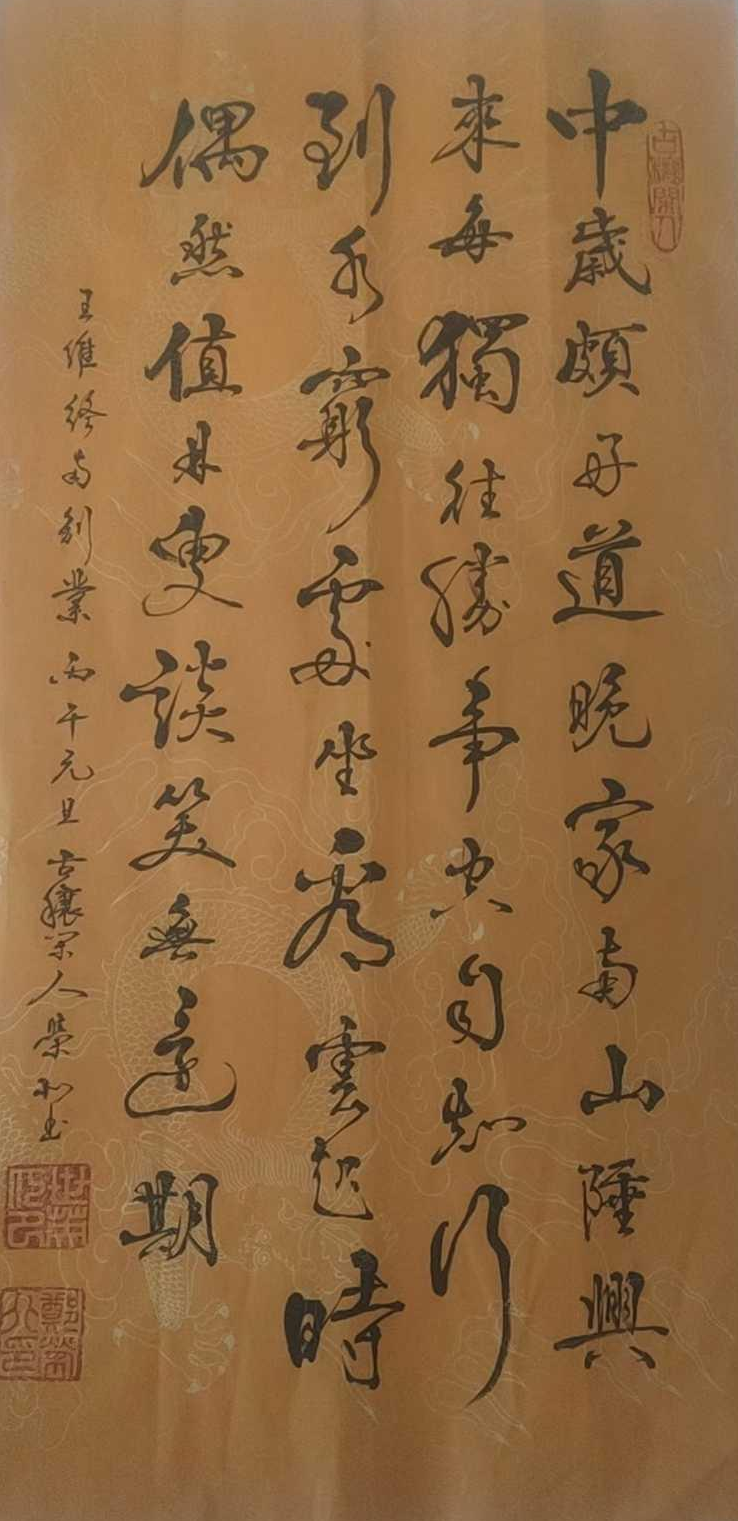 中歲頗好道晚家南山陲興
來每獨往勝事空自知行
到水窮處坐看雲起時
偶然值林叟談笑無還期
王維終南別業丙午元旦古穰閑人榮和書
古穰閑人